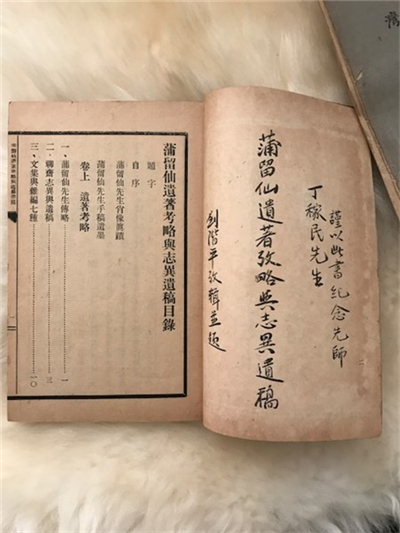 謹以此書紀念先師
丁稼民先生
蒲留仙遺著攷略與志異遺稿
劉階平攷輯並題
蒲留仙遺著考略與志異遺稿目錄
題字
自序
蒲留仙先生肖像眞蹟
蒲留仙先生手稿遺墨
卷上 遺著考略
一、蒲留仙先生傳略……一
二、聊齋志異遺稿……三
三、文集與雜編七種……一〇